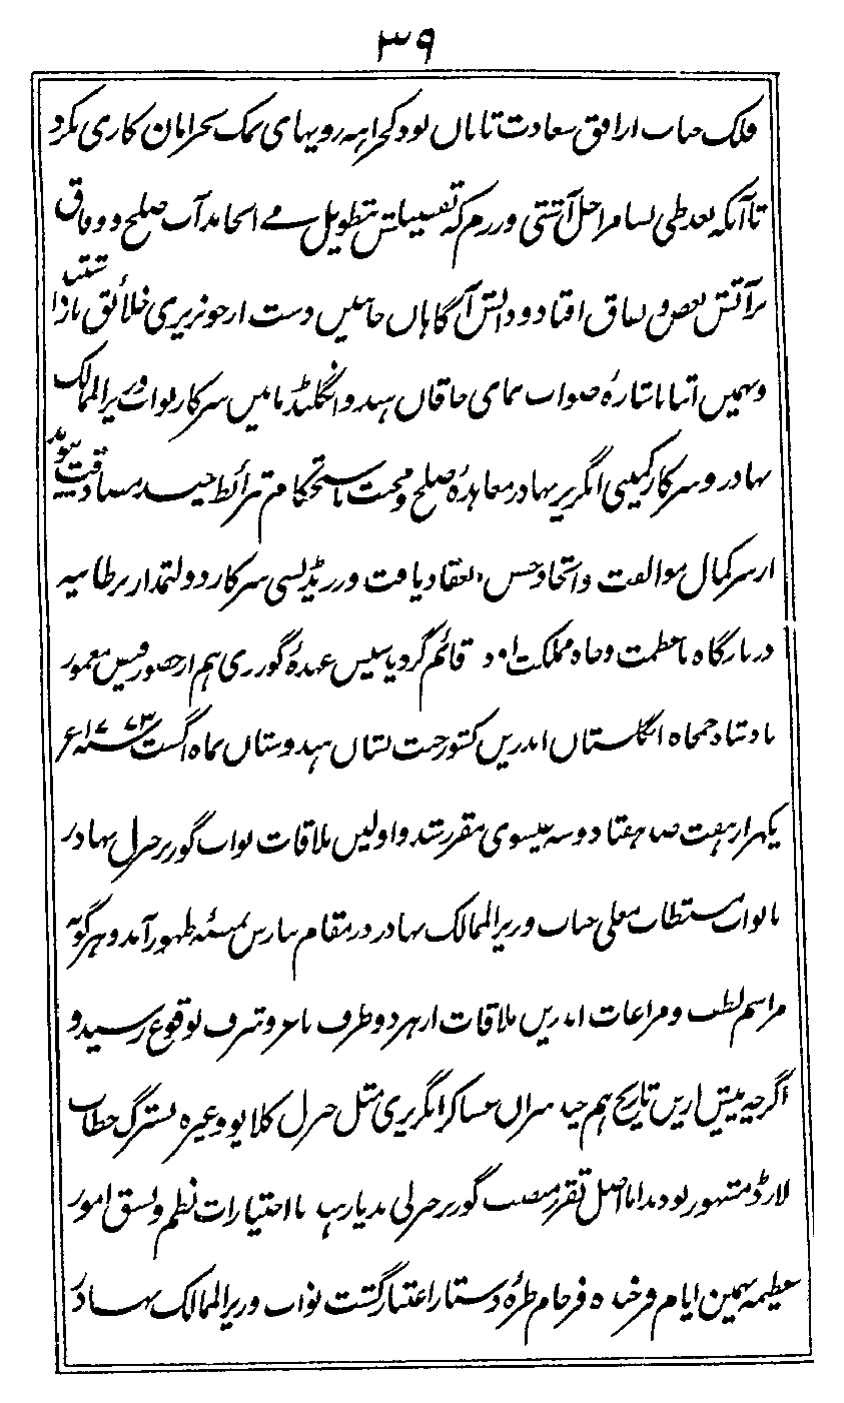 ۳۹
فلک جناب از افق سعادت تابان بود کجراهه رویهای نمک بحرامان کاری نکرد
تا آنکه بعد طی بسا مراحل آشتی و رزم که تفسیلش بتطویل می انجامد آب صلح و وفاق
بر آتش بغض و نفاق افتاد و دانش آگاهان جانبین دست از خونریزی خلائق باز داشتند
و بهمین اثنا باشارهٔ صواب نمای خاقان هند و انگلنڈ مابین سرکار نواب وزیر الممالک
بهادر و سرکار کمپنی انگریز بهادر معاهدهٔ صلح و محبت باستحکام شرائط چند صداقت پیوند
از سر کمال موالفت و اتحاد حسن انعقاد یافت و رزیڈنسی سرکار دولتمدار برطانیه
در بارگاه با عظمت و جاه مملکت اود قائم گردید پس عهدهٔ گورنری هم از حضور فیض معمور
بادشاه جمجاه انگلستان اندرین کشور جنت نشان هندوستان بماه اگست سنه ۱۷۷۳ع
یکهزار هفت صد هفتاد و سه عیسوی مقرر شد و اولین ملاقات نواب گورنر جنرل بهادر
با نواب مستطاب معلی جناب وزیر الممالک بهادر در مقام بنارس بمنصهٔ ظهور آمد و هر گونه
مراسم لطف و مراعات اندرین ملاقات از هر دو طرف با عز و شرف بوقوع رسید و
اگرچه پیش ازین تاریخ هم چند سران عساکر انگریزی مثل جنرل کلایو و غیره بسترگ خطاب
لارڈ مشهور بودند اما اصل تقرر منصب گورنر جنرلی بدیار هند با اختیارات نظم و نسق امور
عظیمه بهمین ایام فرخنده فرجام طرهٔ دستار اعتبار گشت نواب وزیر الممالک بهادر